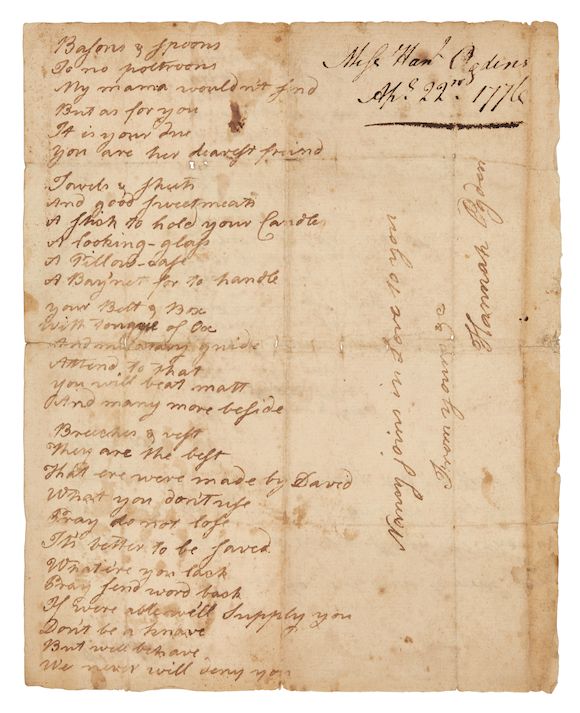 Basons & spoons
To no poltroons
My mama wouldn't send
But as for you
It is your due
You are her dearest friend
Towels & sheets
And good sweetmeats
A stick to hold your Candles
A looking-glass
A Pillow-case
A Bay'net for to handle
your Belt & Box
With tongue of Ox
And military guide
Attend to that
you will beat matt
And many more beside
Breeches & vest
They are the best
That ere were made by David
What you don't use
Pray do not lose
Its better to be saved
What'ere you lack
Pray send word back
If were able we'll Supply you
Don't be a knave
But will behave
We never will deny you
Miss Hanh Ogdens
Apl 22nd 1776
Nancy joins in Love to you
From yours &c
Hannah Ogden